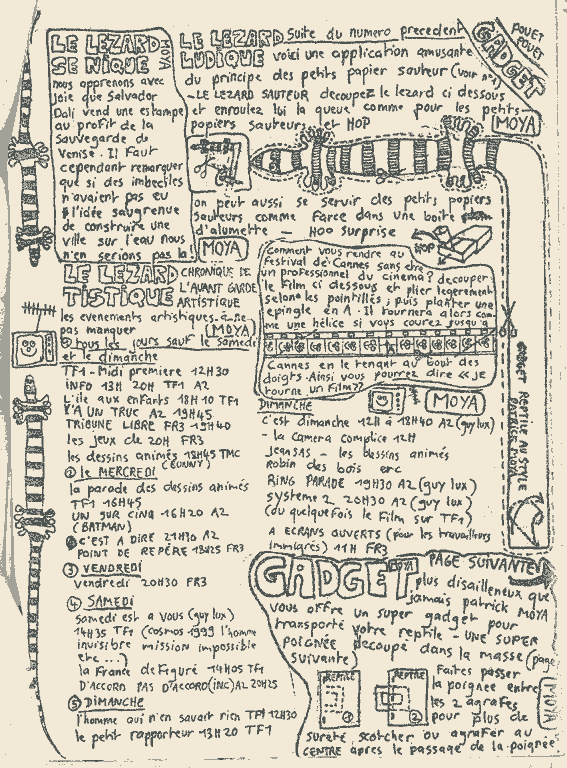 LE LEZARD
SE NIQUE
MOYA
nous apprenons avec
joie que Salvador
Dali vend une estampe
au profit de la
sauvegarde de
Venise. Il Faut
cependant remarquer
que si des imbeciles
n'avaient pas eu
l'idée saugrenue
de construire une
ville sur l'eau nous
n'en serions pas la!
LE LEZARD
LUDIQUE
Suite du numero precedent
voici une application amusante
du principe des petits papier sauteur (voir n°1)
-LE LEZARD SAUTEUR decoupez le lezard ci dessous
et enroulez lui la queue comme pour les petits
papiers sauteurs et HOP
MOYA
POUET
POUET
GADGET
on peut aussi se servir des petits papiers
Sauteurs comme Farce dans une boite
d'alumette — HOO surprise
MOYA
HOP
LE LEZARD
TISTIQUE
CHRONIQUE DE
L'AVANT GARDE
ARTISTIQUE
les evenements artistiques à ne
pas manquer
MOYA
① tous les jours sauf le samedi
et le dimanche
TF1 - Midi premiere 12H30
INFO 13H 20H TF1 A2
L'ile aux enfants 18H10 TF1
Y'A UN TRUC A2 19H45
TRIBUNE LIBRE FR3 19H40
les jeux de 20H FR3
les dessins animés 18H45 TMC
② le MERCREDI (BUNNY)
la parade des dessins animés
TF1 16H45
UN SUR CINQ 16H20 A2
(BATMAN)
C'EST A DIRE 21H30 A2
POINT DE REPERE 18H25 FR3
③ VENDREDI
vendredi 20H30 FR3
④ SAMEDI
samedi est a vous (guy lux)
14H35 TF1 (cosmos 1999 l'homme
invisible mission impossible
etc...)
la France deFiguré 14H05 TF1
D'ACCORD PAS D'ACCORD (INC) A2 20H25
⑤ DIMANCHE
l'homme qui n'en savait rien TF1 12H30
le petit rapporteur 13H20 TF1
Comment vous rendre au
festival de Cannes sans être
un professionnel du cinema? decouper
le Film ci dessous et plier legerement
selon les pointillés; puis planter une
epingle en A. Il tournera alors com-
me une hélice si vous courez jusqu'a
Cannes en le tenant au bout des
doigts. Ainsi vous pourrez dire «je
tourne un Film??
MOYA
DIMANCHE
c'est dimanche 12H à 18H40 A2 (guy lux)
- la camera complice 12H
JEANSAS - les dessins animés
Robin des bois etc
RING PARADE 19H30 A2 (guy lux)
systeme 2 20H30 A2 (guy lux)
(ou quelqueFois le Film sur TF1)
A ECRANS OUVERTS (pour les travailleurs
immigrés) 11H FR3
GADGET REPTILE AU STYLE
PATRICK MOYA
GADGET
MOYA
PAGE SUIVANTE
plus disailleneux que
jamais patrick MOYA
vous offre un super gadget pour
transporté votre reptile - UNE SUPER
POIGNÉE decoupé dans la masse (page
suivante)
REPTILE
①
REPTILE
②
Faites passer
la poignée entre
les 2 agrafes
pour plus de
sureté scotcher ou agrafer au
CENTRE apres le passage de la poignée
MOYA